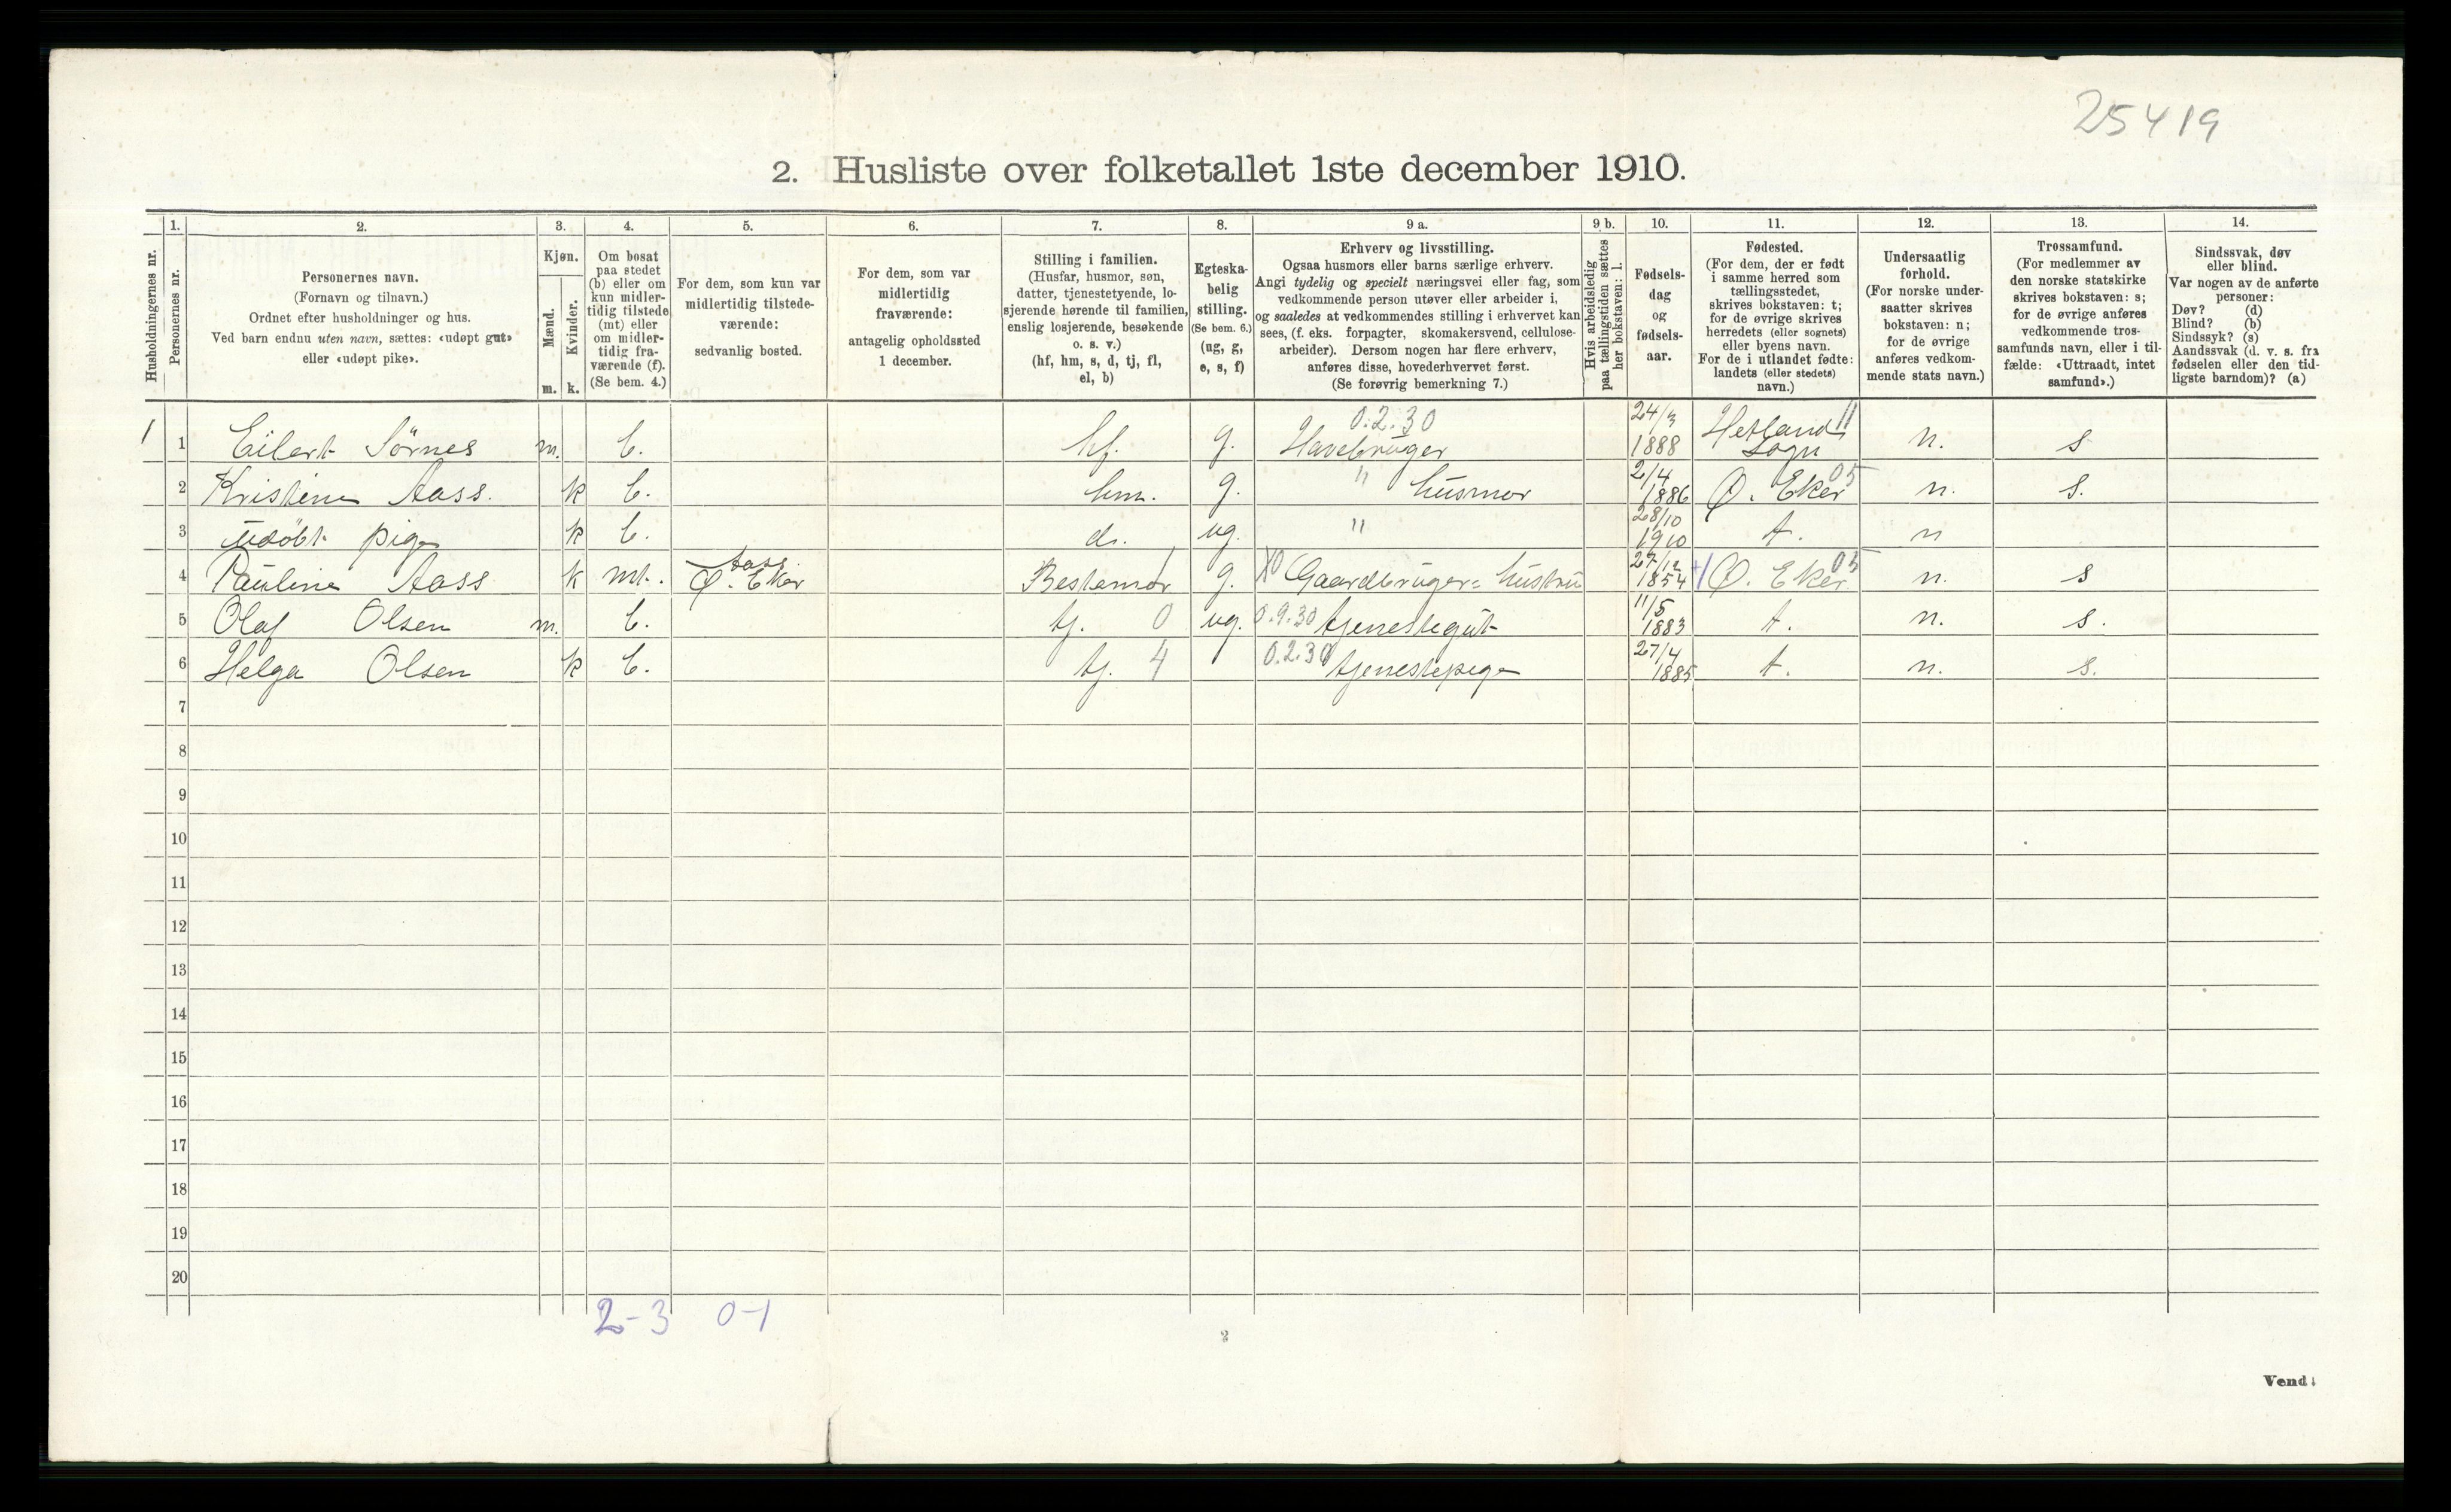 25419
2. Husliste over folketallet 1ste december 1910.
1. 2. 3. 4. 5. 6. 7. 8. 9 a. 9 b. 10. 11. 12. 13. 14.
Husholdningernes nr.
Personernes nr.
Personernes navn.
(Fornavn og tilnavn.)
Ordnet efter husholdninger og hus.
Ved barn endnu uten navn, sættes: «udøpt gut»
eller «udøpt pike».
Kjøn.
Mænd.
m.
Kvinder.
k.
Om bosat
paa stedet
(b) eller om
kun midler-
tidig tilstede
(mt) eller
om midler-
tidig fra-
værende (f).
(Se bem. 4.)
For dem, som kun var
midlertidig tilstede-
værende:
sedvanlig bosted.
For dem, som var
midlertidig
fraværende:
antagelig opholdssted
1 december.
Stilling i familien.
(Husfar, husmor, søn,
datter, tjenestetyende, lo-
sjerende hørende til familien,
enslig losjerende, besøkende
o. s. v.)
(hf, hm, s, d, tj, fl,
el, b)
Egteska-
belig
stilling.
(Se bem. 6.)
(ug, g,
e, s, f)
Erhverv og livsstilling.
Ogsaa husmors eller barns særlige erhverv.
Angi tydelig og specielt næringsvei eller fag, som
vedkommende person utøver eller arbeider i,
og saaledes at vedkommendes stilling i erhvervet kan
sees, (f. eks. forpagter, skomakersvend, cellulose-
arbeider). Dersom nogen har flere erhverv,
anføres disse, hovederhvervet først.
(Se forøvrig bemerkning 7.)
Hvis arbeidsledig
paa tællingstiden sættes
her bokstaven: l.
Fødsels-
dag
og
fødsels-
aar.
Fødested.
(For dem, der er født
i samme herred som
tællingsstedet,
skrives bokstaven: t;
for de øvrige skrives
herredets (eller sognets)
eller byens navn.
For de i utlandet fødte:
landets (eller stedets)
navn.)
Undersaatlig
forhold.
(For norske under-
saatter skrives
bokstaven: n;
for de øvrige
anføres vedkom-
mende stats navn.)
Trossamfund.
(For medlemmer av
den norske statskirke
skrives bokstaven: s;
for de øvrige anføres
vedkommende tros-
samfunds navn, eller i til-
fælde: «Uttraadt, intet
samfund».)
Sindssvak, døv
eller blind.
Var nogen av de anførte
personer:
Døv? (d)
Blind? (b)
Sindssyk? (s)
Aandssvak (d. v. s. fra
fødselen eller den tid-
ligste barndom)? (a)
0.2.30 24/3 11
1 1 Eilert Sörnes m. b. hf. g. Havebruger 1888 Hetland Sogn n. s
2 Kristine Aass. k b. hm. g. " husmor 2/4 1886 Ø. Eker 05 n. s.
3 Udöbt pige k b. d. ug. " 28/10 1910 t. n
4 Pauline Aass k mt. Aass Ø. Eker Bestemor g. X0 Gaardbruger= hustru 27/12 1854 Ø. Eker 05 n. s
5 Olaf Olsen m. b. tj. 0 ug. 0.9.30 tjenestegut 11/5 1883 t. n. s.
6 Helga Olsen k b. tj. 4 0.2.30 tjenestepige 27/4 1885 t. n. s.
7
8
9
10
11
12
13
14
15
16
17
18
19
20
2-3 0-1
Vend!